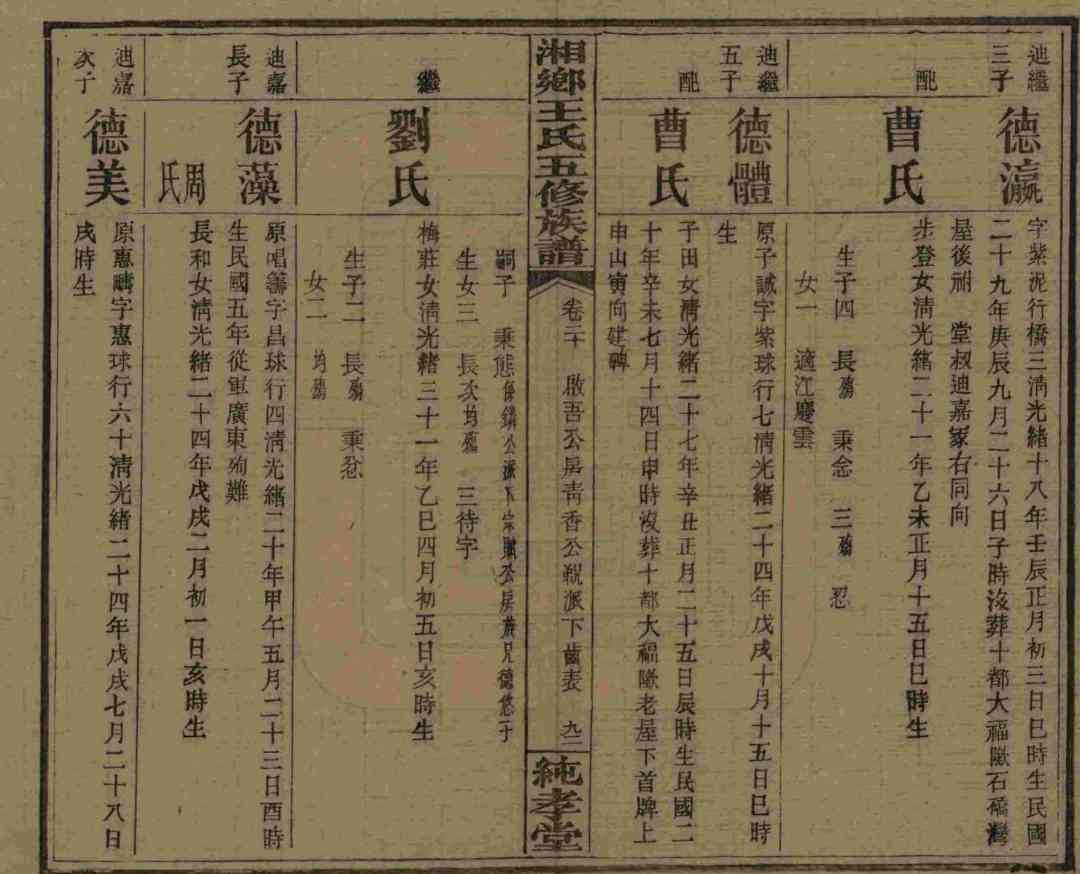 迪繼三子
德瀛
字紫泥行橋三淸光緒十八年壬辰正月初三日巳時生民國
二十九年庚辰九月二十六日子時沒葬十都大福歐石橋灣
屋後祔 堂叔迪嘉冢右同向
配
曹氏
步登女淸光緒二十一年乙未正月十五日巳時生
生子四 長殤 秉念 三殤 忍
女一 適江慶雲
迪繼五子
德體
原子誠字紫球行七淸光緒二十四年戊戌十月十五日巳時
生
配
曹氏
子田女淸光緒二十七年辛丑正月二十五日辰時生民國二
十年辛未七月十四日申時沒葬十都大福歐老屋下首牌上
申山寅向建碑
湘鄉王氏五修族譜
卷二十 啟吾公房靑香公 派下齒表 九二
純孝堂
嗣子 秉態係鑄公派下宗賦公房族兄德悠二子
生女三 長次均殤 三待字
繼
劉氏
梅莊女淸光緒三十一年乙巳四月初五日亥時生
生子二 長殤 秉忿
女二 均殤
迪嘉長子
德藻
原唱籌字昌球行四淸光緒二十年甲午五月二十三日酉時
生民國五年從軍廣東殉難
周氏
長和女淸光緒二十四年戊戌二月初一日亥時生
迪嘉次子
德美
原惠疇字惠球行六十淸光緒二十四年戊戌七月二十八日
戌時生